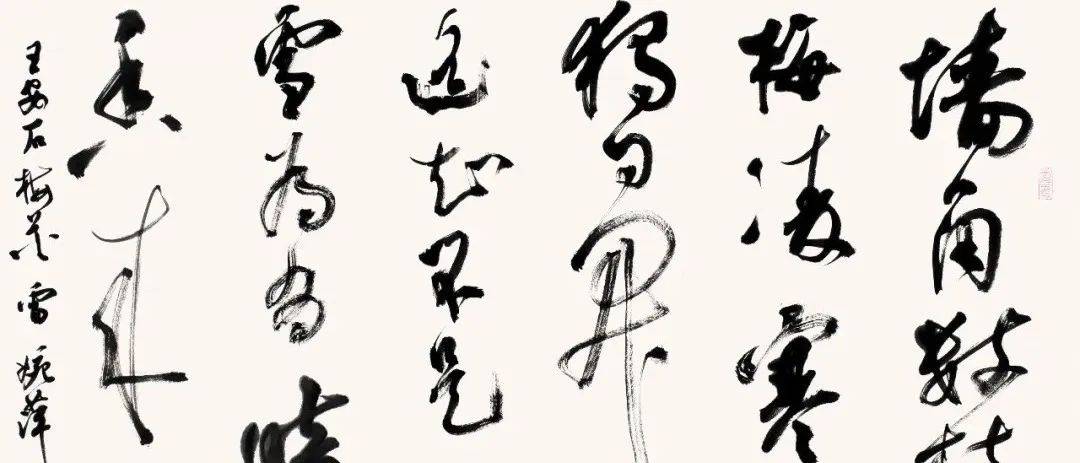 墙角数枝
梅凌寒
獨自開
遥知不是
雪為有暗
香來
王安石梅花 雷婉萍